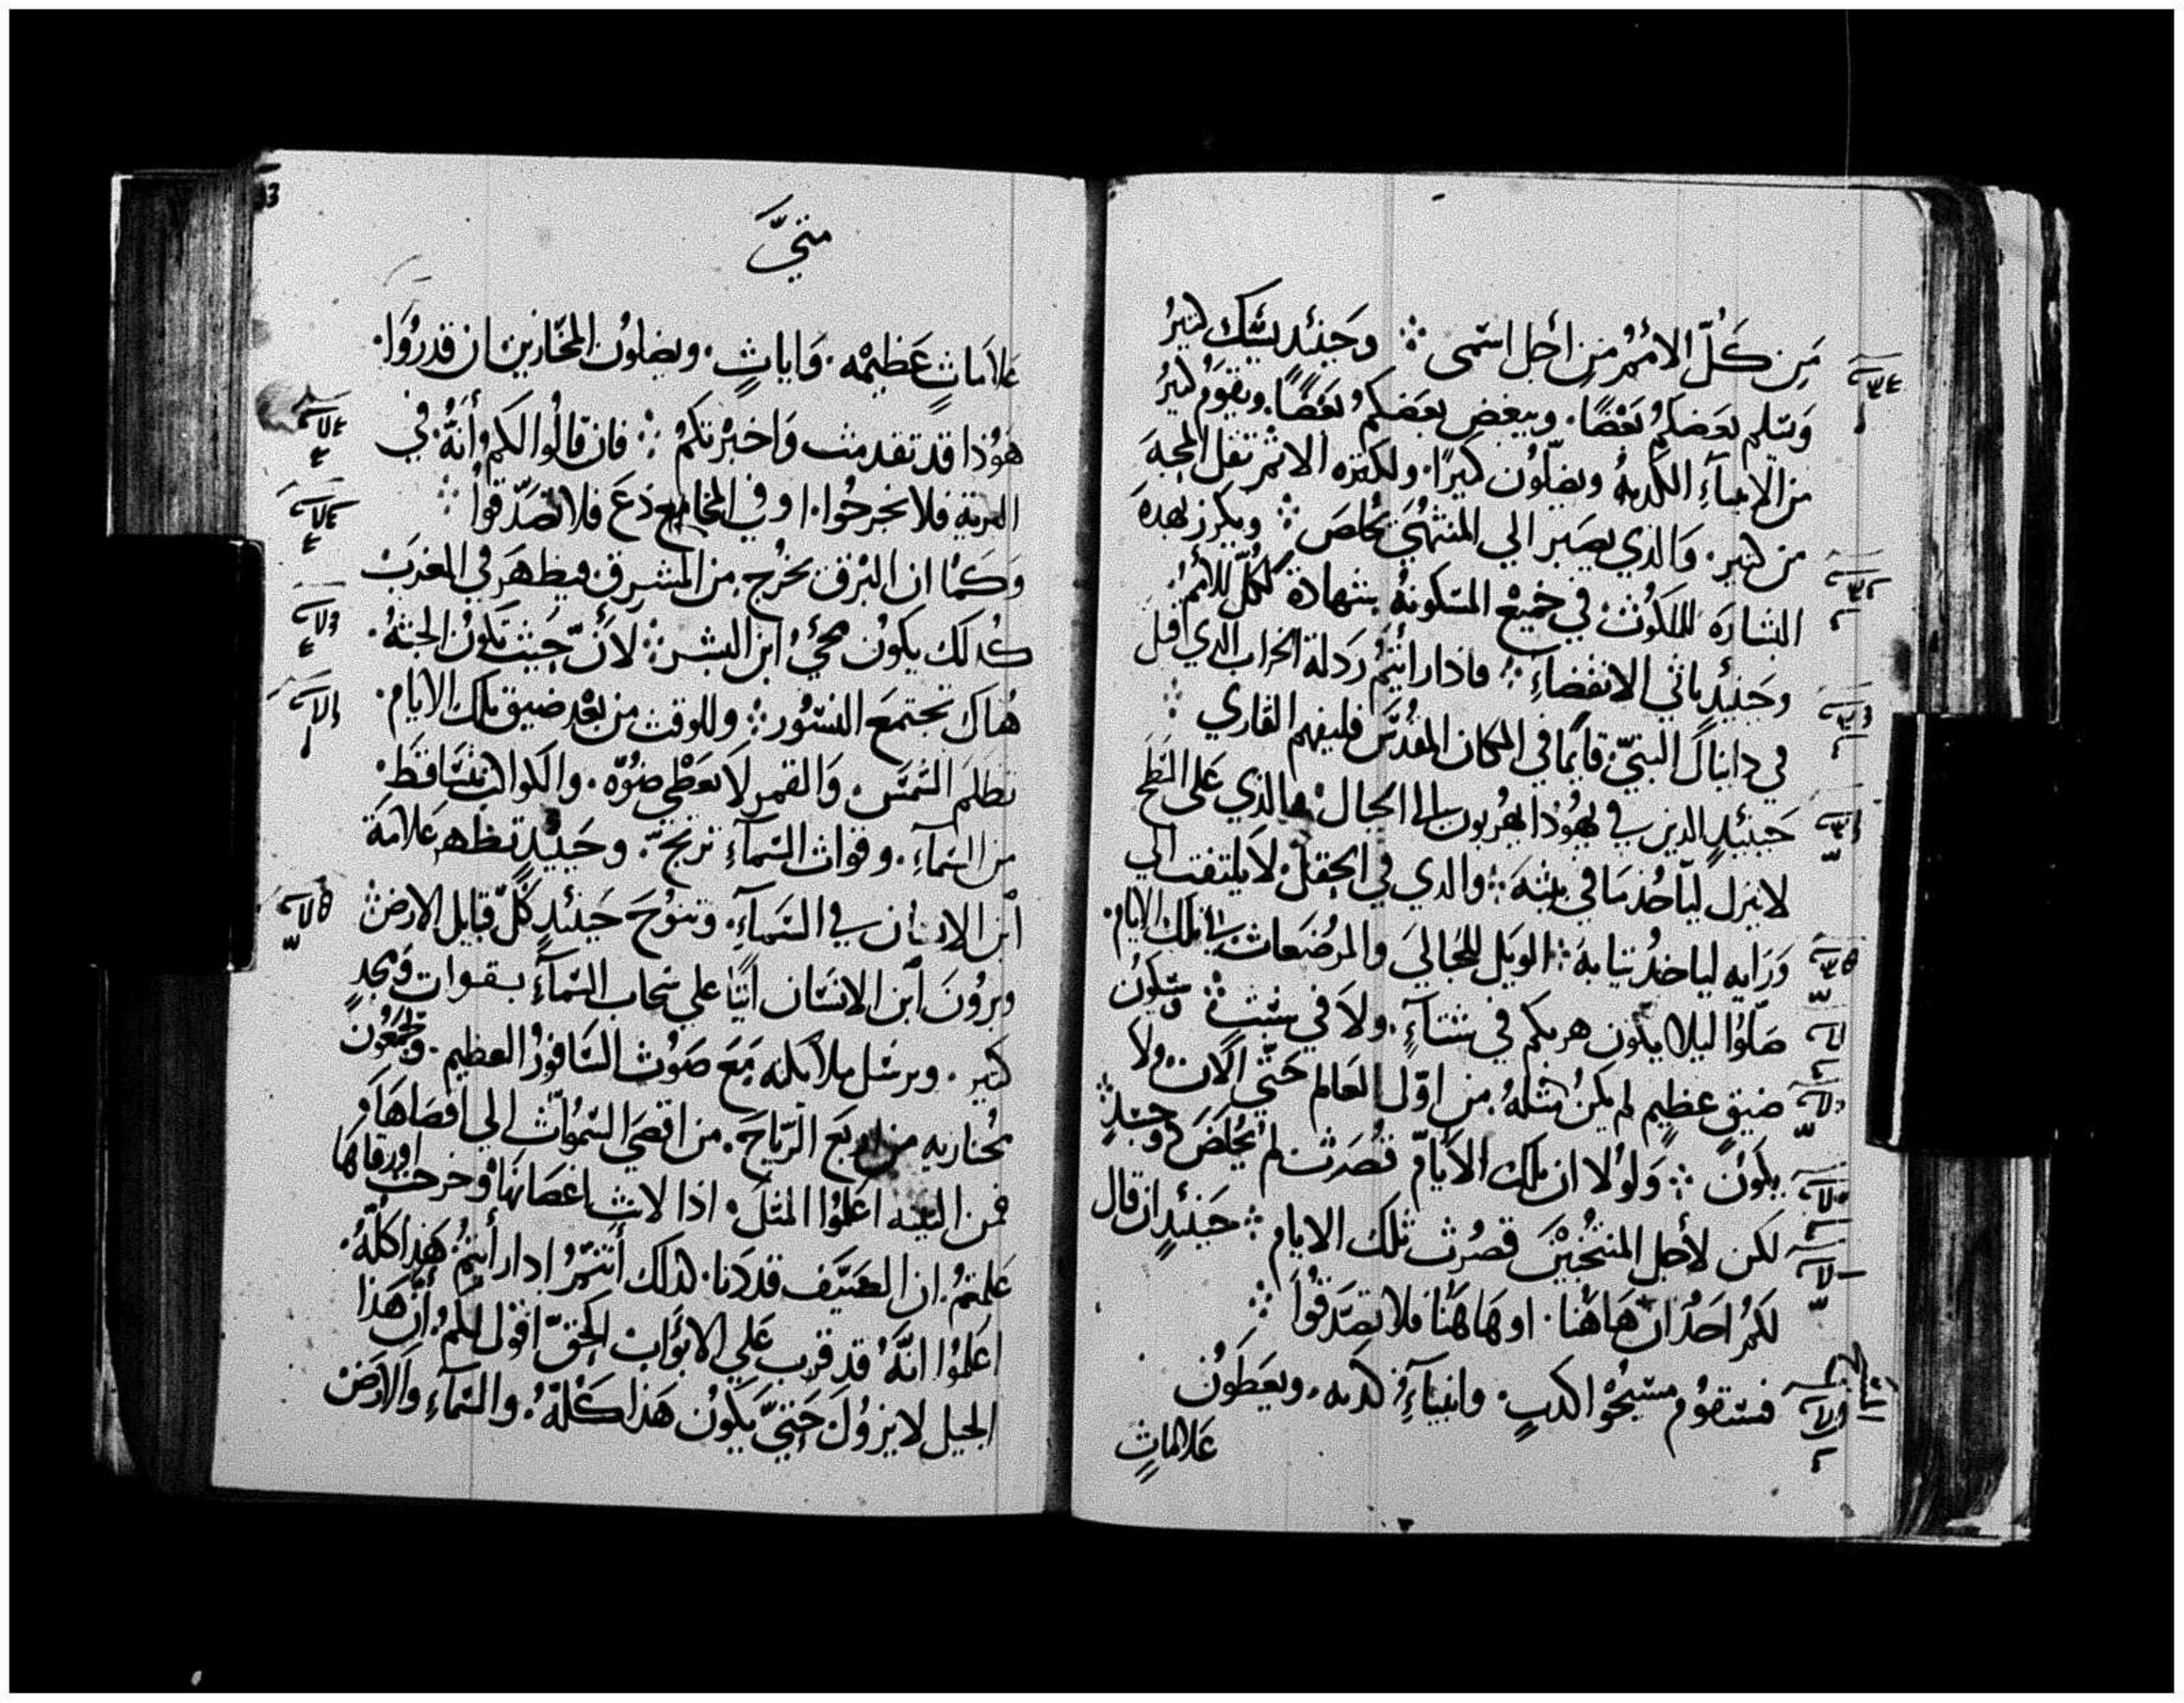 مِن كُلّ الاُمَمُ مِن اجل اسمى ⁘ وحَينئد يشك كتيرُ
وَيسلم بعَضكمُ بعَضًا. ويبغض بعَضكمُ بعَضًا. ويقوَمُ كتيرُ
من الانبيآءِ الكدبهُ ويضلّون كتيرًا. ولكتره الاثمر تقل المحبهَ
من كتير. وَالذي يصَبر الي المنتهُيَ يخلصَ ⁘ ويكرز بهدهَ
البشارَه للملكوُتْ في جميعْ المسَكونهُ بشهادة لكُلّ للاُممُ.
وحَينيدٍ ياتي الانقضاءَ ⁘ فاذا راَيتمُ رَدلةَ الخراب الدي قيل
في دانيالَ النبَيّ قآيمًا في المكان المقدسَّ فليفهم القاري ⁘
حَينئيدٍ الدين في يهُوذا يهُربون الي الجبال ⁘ والذي عَلى السَطحَ
لا ينزل ليآحُد مَا في بيتهَ ⁘ والدي في الحِقلْ لاَ يلتفت الي
وَرَايه لياخدُ تيابهَ ⁘ الويل للحُبالَيَ والمرضُعاتْ في تلك الايام.
صَلوُا ليلا يكون هربكم في شتآءٍ. ولاَ في سَبت ⁘ وَسَيكوُن
ضيقٍ عظيمٍ لم يكنُ مثلهُ من اوّل العَالم حَتّي الآن. ولا
يكوَنُ ⁘ وَلوُلا ان تلك الاَيامّ قصُرَت لم يُخلصَ ذو جسَدٍ ⁘
لكن لأجل المنتخُبيْنَ قصُرت تلك الايام ⁘ حَينئدٍ ان قال
لكمُ احَدُ ان هَاهُنا. او هَا هُنا فلا تصَدقوُا ⁘
فستقوُم مسَيحُوْ الكدبٍ. وانبيآءِ كدبه. ويعَطوَنُ
عَلامَاتٍ
متيَّ
عَلامَاتٍ عَظيمْه. وَاياتٍ. ويضلوُن المخَتارين ان قدروُا.
هوُذا قد تقدمت وَاخبرْتكمُ ⁘ فان قالوُا لكم أنهُ في
البريّة فلا تخرجُوا. او في المخَادع فلا تصَدّقوا ⁘
وَكمَا ان البرْق يخرُج من المشرق فيظهَر في المغربْ
كُدلك يكوُن مجَيُ ابن البشر ⁘ لأَنّ حَيثَ تكونُ الجثهُ.
هُناك تجتمعَ النسَوُر ⁘ وللوقت من بعْد ضيق تلك الايام.
تظلمَ الشمَسَ. وَالقمر لاَ يعَطْي ضوُه. والكواكب تتسَاقطَ.
من السَمآءِ. وقوات السَمآءِ ترتجّ. وحَينيدٍ تظهر عَلامَة
أبن الانسَان في السَمآءِ. وتنوُحَ حَينئدٍ كُلّ قبايل الارضْ
ويروُنَ أبن الانسَان اَتيًا علي سَحاب السَمآءِ بقوات وَمجدٍ
كتير. ويرسَل ملايكته مَعَ صَوت السَافورُ العظيم. ويجمعُون
مُختاريه من اربع الريّاحَ. من اقصَيَ السَموَاتْ الي اقصَاهَا وَ
فمن التينه اعَلموُا المتلَ. اذا لانت اغصَانهَا وَخرجت اورقاها
عَلمتمُ ان الصَيّف قد دَنا. كدلك أنتمُ ادا رأيتمُ هَدا كلهُ.
اعَلموُا انَّهُ قد قرب عَلي الابوَاب الحَقّ اقوُل لكمُ ان هَذا
الجيل لا يزوُلَ حَتيّ يكوُن هَذا كلهُ. والسَمآءِ وَالارَضْ